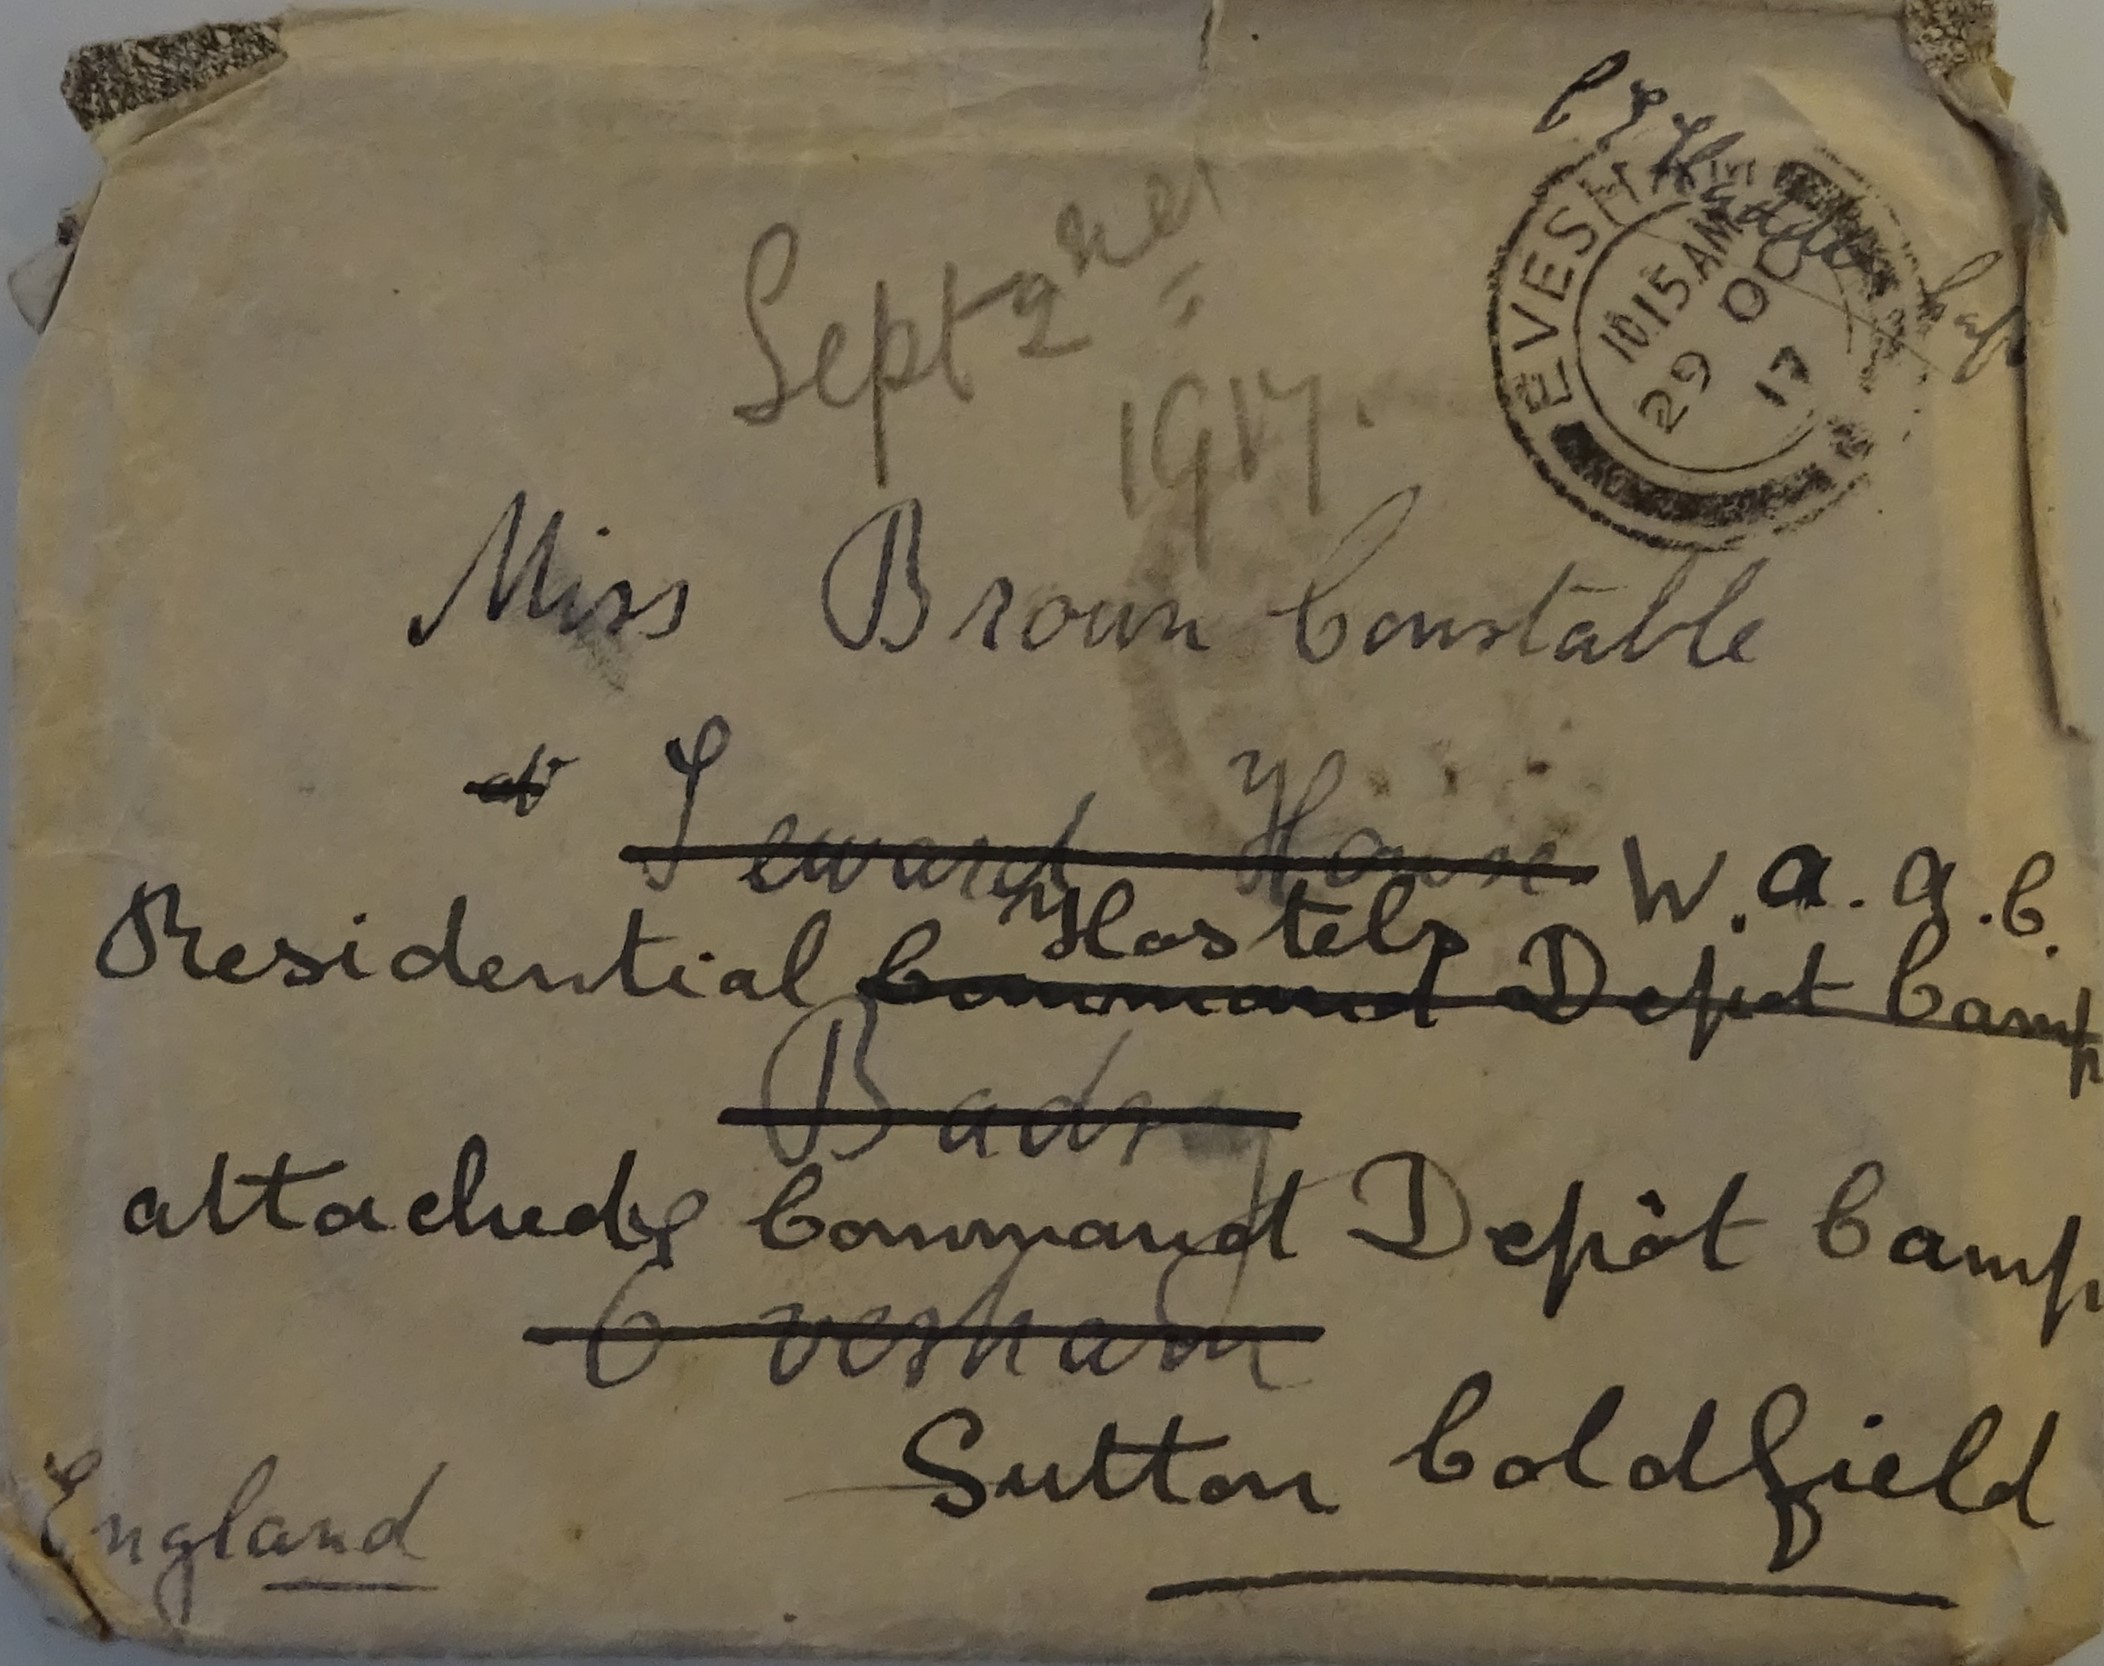 EVESHAM
10.15 AM
29 OC
17
Sept 2nd
1917.
Miss Brown Constable
at Seward House
W.A.A.C.
Hostels
Residential Command Depot Camp
Badsey
attached Command Depôt Camp
Evesham
Sutton Coldfield
England